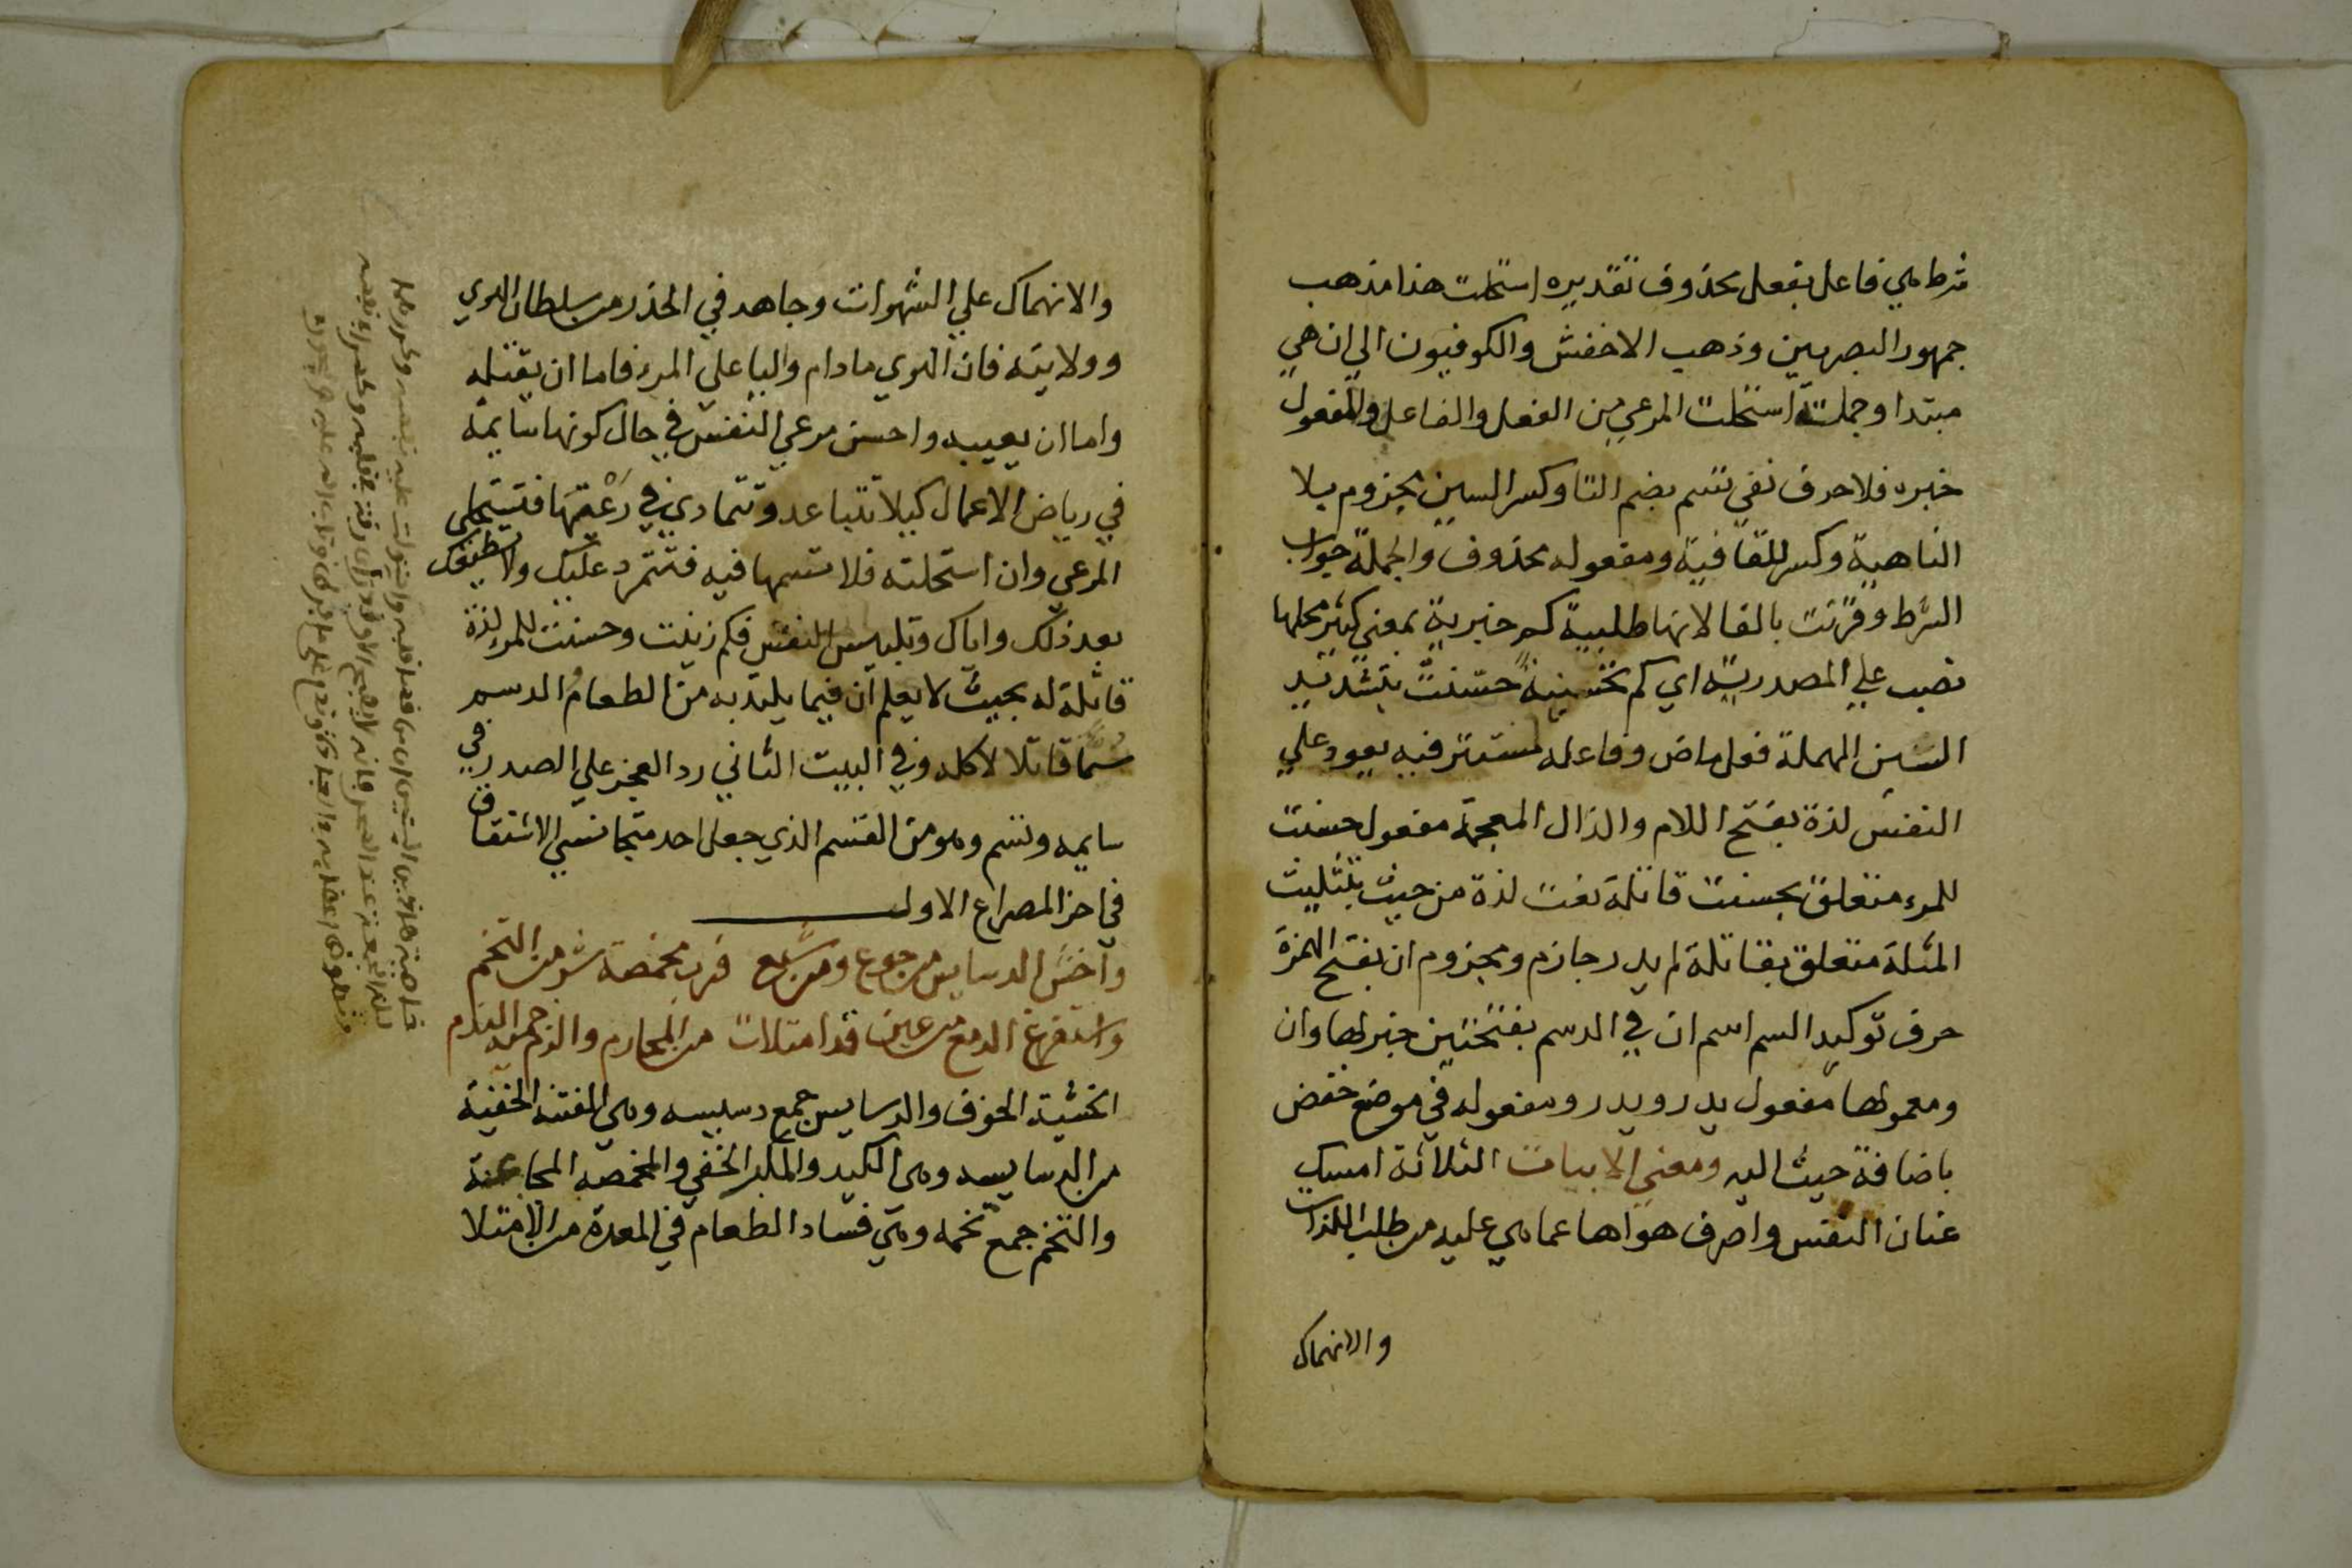 شرط هي فاعل بفعل محذوف تقديره استحلت هذا مذهب
جمهور البصريين وذهب الاخفش والكوفيون الي ان هي
مبتدا وجملة استحلت المرعي من الفعل والفاعل والمفعول
خبره فلا حرف نفي تسم بضم التا وكسر السين مجزوم بلا
الناهية وكسر للقافية ومفعوله محذوف والجملة جواب
الشرط وقرنت بالفا لانها طلبية كم خبرية بمعني كثير محلها
نصب علي المصدرية اي كم تحسينة حسنت بتشديد
السين المهملة فعل ماض وفاعله مستتر فيه يعود علي
النفس لذة بفتح اللام والذال المعجمة مفعول حسنت
للمرء متعلق بحسنت قاتلة نعت لذة من حيث بتثليث
المثلة متعلق بقاتلة لم يدر جازم ومجزوم ان بفتح الهمزة
حرف توكيد السم اسم ان في الدسم بفتحتين خبرها وان
ومعمولها مفعول يدر ويدر ومفعوله في موضع خفض
باضافة حيث اليه ومعني الابيات الثلاثة امسك
عنان النفس واصرف هواها عما هي عليه من طلب اللذات
والانهماك
والانهماك علي الشهوات وجاهد في الحذر من سلطان الهوي
وولايته فان الهوي مادام واليا علي المرء فاما ان يقتله
واما ان يعيبه واحسن مرعي النفس في حال كونها سايمة
في رياض الاعمال كيلا تتباعد وتتمادي في رعيتها فتستحلي
المرعي وان استحلته فلا تسمها فيه فتتمرد عليك ولا تطيعك
بعد ذلك واياك وتلبيس النفس فكم زينت وحسنت للمرء لذة
قاتلة له بحيث لا يعلم ان فيما يلتذ به من الطعام الدسم
سما قاتلا لاكله وفي البيت الثاني رد العجز علي الصدر في
سايمه وتسم وهو من القسم الذي جعل احد متجانسي الاشتقاق
في اخر المصراع الاول
واخش الدسايس من جوع ومن شبع فرب مخمصة شر من التخم
واستفرغ الدمع من عين قد امتلات من المحارم والزم حمية الندم
الخشية الخوف والدسايس جمع دسيسه وهي الفتنة الخفية
من الدسايسه وهي الكيد والمكر الخفي والمخمصه المجاعة
والتخم جمع تخمه وهي فساد الطعام في المعدة من الامتلا